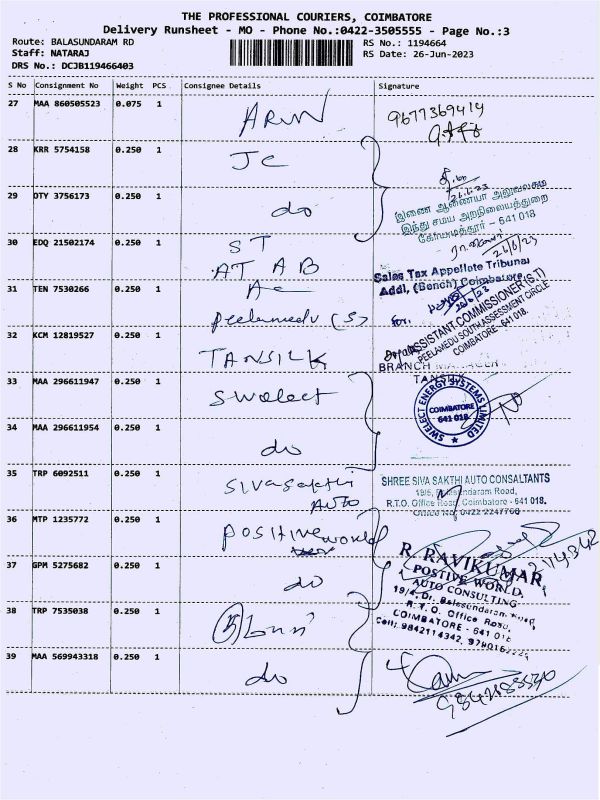 THE PROFESSIONAL COURIERS, COIMBATORE
Delivery Runsheet - MO - Phone No.:0422-3505555 - Page No.:3
Route: BALASUNDARAM RD
RS No.: 1194664
Staff: NATARAJ
RS Date: 26-Jun-2023
DRS No.: DCJB119466403
S No Consignment No Weight PCS Consignee Details Signature
27 MAA 860505523 0.075 1 ARUN 9677369414
28 KRR 5754158 0.250 1 JC
29 DTY 3756173 0.250 1 do
26.6.23
இணை ஆணையர் அலுவலகம்
இந்து சமய அறநிலையத்துறை
கோயமுத்தூர் - 641 018
30 EDQ 21502174 0.250 1 ST
AT AB
26/6/23
Sales Tax Appellate Tribunal
Addl, (Bench) Coimbatore
31 TEN 7530266 0.250 1 AC
Peelamedu (S)
ASSISTANT COMMISSIONER (S.T)
PEELAMEDU SOUTH ASSESSMENT CIRCLE
COIMBATORE - 641 018.
32 KCM 12819527 0.250 1 TANSILK
BRANCH MANAGER
TANSILK
33 MAA 296611947 0.250 1 Swelect
SWELECT ENERGY SYSTEMS LIMITED
COIMBATORE
641 018
34 MAA 296611954 0.250 1 do
35 TRP 6092511 0.250 1 Sivasakthi
AUTO
SHREE SIVA SAKTHI AUTO CONSALTANTS
Balasundaram Road,
R.T.O. Office Road, Coimbatore - 641 018.
Office No. 0422 2247766
36 MTP 1235772 0.250 1 Positive world
37 GPM 5275682 0.250 1 do
R. RAVIKUMAR,
POSTIVE WORLD,
AUTO CONSULTING
19/4, Dr. Balasundaram Road,
R.T.O. Office Road,
COIMBATORE - 641 018
Cell: 9842114342,
38 TRP 7535038 0.250 1
39 MAA 569943318 0.250 1 do